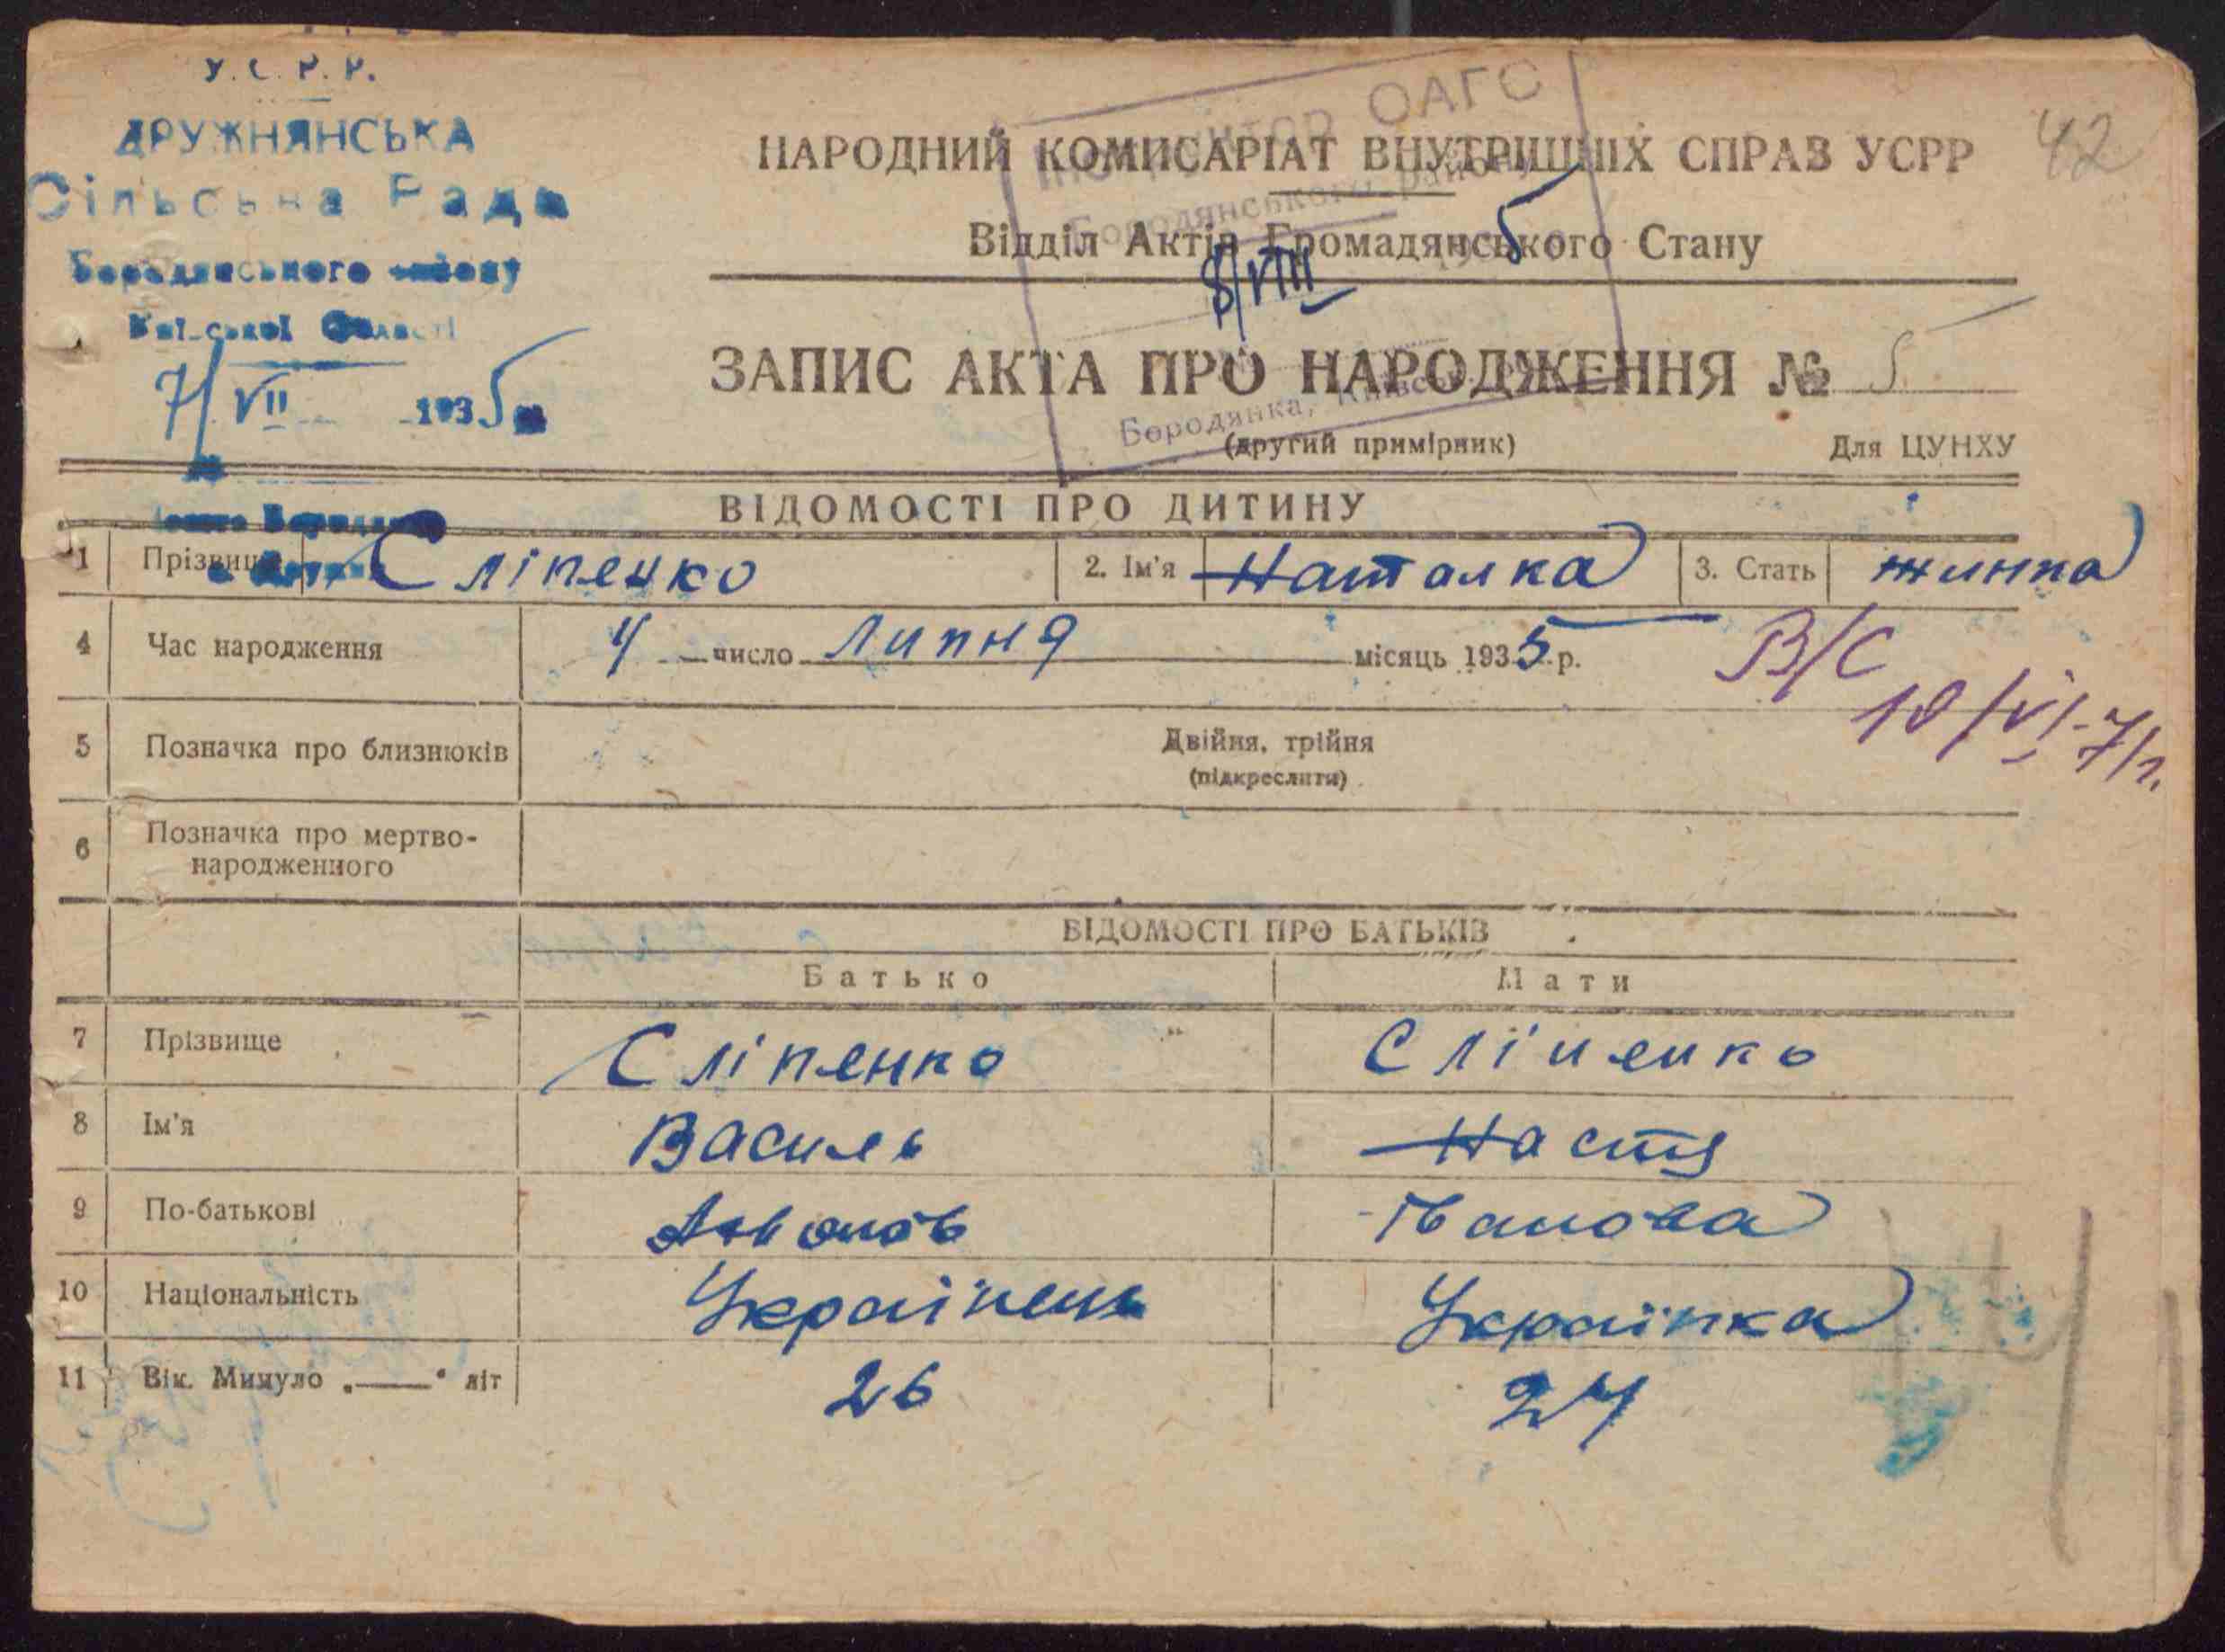 У.С.Р.Р.
ДРУЖНЯНСЬКА
Сільська Рада
Бородянського району
Київської Області
7/VII 1935
42
ОАГС
Бородянського району
5
8/VIII
Бородянка,
НАРОДНИЙ КОМИСАРІАТ ВНУТРІШНІХ СПРАВ УСРР
Відділ Актів Громадянського Стану
ЗАПИС АКТА ПРО НАРОДЖЕННЯ № 5
(другий примірник)
Для ЦУНХУ
ВІДОМОСТІ ПРО ДИТИНУ
1 Прізвище Сліпенко 2. Ім'я Наталка 3. Стать жинка
4 Час народження 4 число Липня місяць 1935 р.
В/С
10/VI-71г.
5 Позначка про близнюків Двійня, трійня
(підкреслити)
6 Позначка про мертво-
народженного
ВІДОМОСТІ ПРО БАТЬКІВ
Батько Мати
7 Прізвище Сліпенко Сліпенко
8 Ім'я Василь Настя
9 По-батькові Іванова
10 Національність Українець Українка
11 Вік. Минуло „——“ літ 26 24